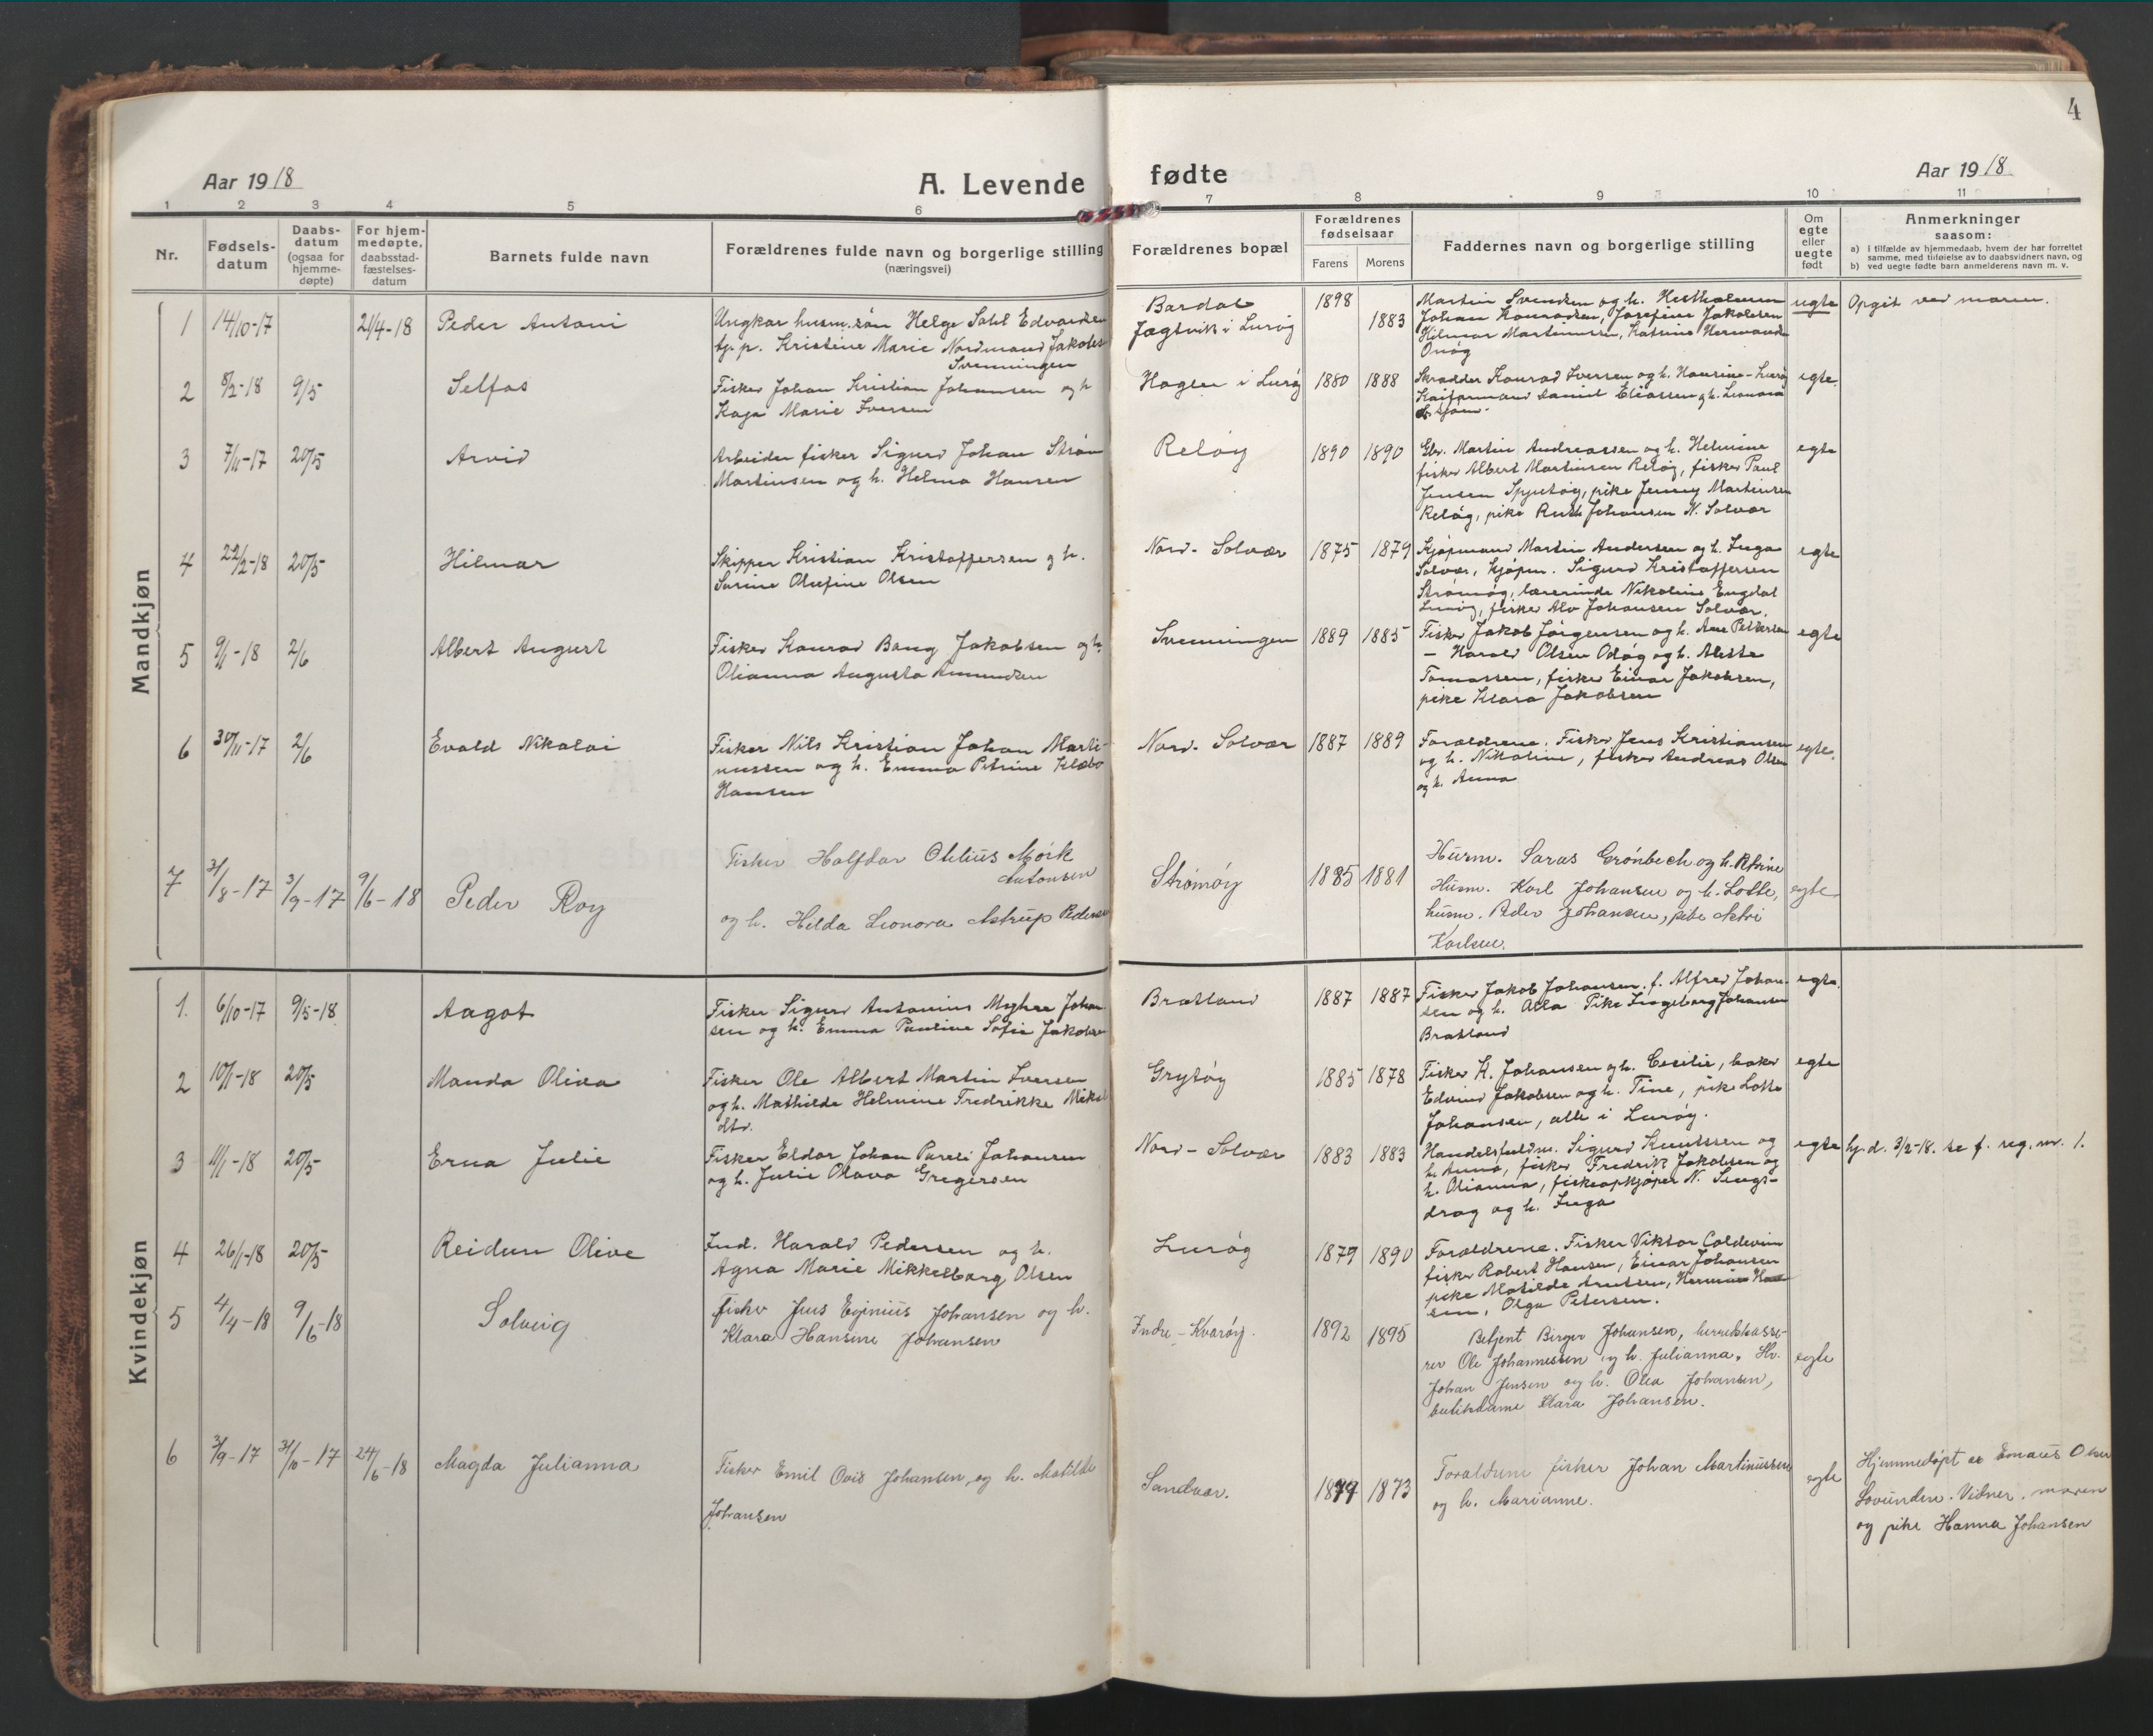 4
Aar 1918
A. Levende fødte
Aar 1918
1 2 3 4 5 6 7 8 9 10 11
Nr.
Fødsels-
datum
Daabs-
datum
(ogsaa for
hjemme-
døpte)
For hjem-
medøpte,
daabsstad-
fæstelses-
datum
Barnets fulde navn
Forældrenes fulde navn og borgerlige stilling
(næringsvei)
Forældrenes bopæl
Forældrenes
fødselsaar
Farens Morens
Faddernes navn og borgerlige stilling
Om
egte
eller
uegte
født
Anmerkninger
saasom:
a) i tilfælde av hjemmedaab, hvem der har forrettet
samme, med tilføielse av to daabsvidners navn, og
b) ved uegte fødte barn anmelderens navn m. v.
Mandkjøn
1 14/10-17 21/4-18 Peder Antoni
Ungkar husm. søn Helge Edvardsen
og p. Kristine Marie Nordmand Jakobs
Svenningen
Bardal
Jagtvik i Lurøy
1898 1883
Martin Svendsen og h. Hestholmen
Johan Konradsen, Josefine Jakobsen
Hilmar Martinussen, Katrine Hermands
Onøy
uegte
Opgit ved moren.
2 8/2-18 9/5 Selfas
Fisker Johan Kristian Johansen og h
Kaja Marie Iversen
Hagen i Lurøy
1880 1888
Skrædder Konrad Iversen og h. Hansine - Lurøy
Daniel Eliassen og h. Leonora
egte.
3 7/11-17 20/5 Arvid
Arbeider fisker Sigurd Johan Strøm
Martinsen og h. Helma Hansen
Reløy
1890 1890
Gbr. Martin Andreassen og h. Helmine
fisker Albert Martinsen Reløy, fisker Paul
Jensen Spjutøy, pike Jenny Martinsen
Reløy, pike Ruth Johansen N. Solvær
egte
4 22/2-18 20/5 Hilmar
Skipper Kristian Kristoffersen og h.
Sarine Olufine Olsen
Nord-Solvær
1875 1879
Kjøpmand Martin Andersen og h. Inga
Solvær, kjøpm. Sigurd Kristoffersen
Strømøy, lærerinde Nikoline Engdal
Lurøy, fisker Alv Johansen Solvær.
egte
5 9/1-18 2/6 Albert August
Fisker Konrad Bang Jakobsen og h.
Olianna Augusta Amundsen
Svenningen
1889 1885
Fisker Jakob Jørgensen og h. Ane Pettersen
- Harald Olsen Odøy og h. Alette
Tomassen, fisker Einar Jakobsen,
pike Klara Jakobsen
egte
6 30/11-17 2/6 Evald Nikolai
Fisker Nils Kristian Johan Marti-
nussen og h. Emma Petrine Klæbo
Hansen
Nord-Solvær
1887 1889
Forældrene. Fisker Jens Kristiansen
og h. Nikoline, fisker Andreas Olsen
og h. Anna
egte.
7 31/8-17 3/9-17 9/6-18 Peder Roy
Fisker Halfdar Otilius Mørk
Antonsen
og h. Hilda Leonora Astrup Pedersen
Strømøy
1885 1881
Husm. Saras Grønbech og h. Petrine
Husm. Karl Johansen og h. Lotte,
husm. Peder Johansen, pike
Karlsen.
egte
Kvindekjøn
1. 6/10-17 9/5-18 Aagot
Fisker Sigurd Antonius Myhre Johan-
sen og h. Emma Pauline Sofie Jakobsen
Bratland
1887 1887
Fisker Jakob Johansen. f. Alfred Johan-
sen og h. Alla Pike Ingeborg Johansen
Bratland
egte.
2 10/1-18 20/5 Manda Oliva
Fisker Ole Albert Martin Iversen
og h. Mathilde Helmine Fredrikke Mikals
dtr.
Grytøy
1885 1878
Fisker K. Johansen og h. Cecilie, baker
Edvind Jakobsen og h. Tine, pike Lotte
Johansen, alle i Lurøy.
egte
3 11/1-18 20/5 Erna Julie
Fisker Eldar Johan Pareli Johansen
og h. Julie Olava Gregersen
Nord-Solvær
1883 1883
Handelsfuldm. Sigurd Knutssen og
h. Anna, fisker Fredrik Jakobsen og
h. Olianna, fiskeopkjøper N. Lings-
drag og h. Inga
egte
hj. d. 3/2-18. se f. reg. nr. 1.
4 26/1-18 20/5 Reidun Olive
Ind. Harald Pedersen og h.
Agna Marie Mikkelborg Olsen
Lurøy
1879 1890
Forældrene. Fisker Viktor Coldevin
fisker Robert Hansen, Einar Johansen
pike Matilde Arntsen, Hermine Han-
sen, Olga Petersen.
5 4/4-18 9/6-18 Solveig
fisker Jens Eginius Johansen og h.
Klara Hansine Johansen
Indre-Kvarøy.
1892 1895
Betjent Birger Johansen, herredskasse-
rer Ole Johannessen og h. Julianna.
Johan Jensen og h. Olea Johansen,
butikdame Klara Johansen.
egte
6 3/9-17 31/10-17 24/6-18 Magda Julianna
Fisker Emil Ovis Johansen, og h. Matilde
Johansen
Sandvær.
1879 1873
Forældrene fisker Johan Martinussen
og h. Marianne.
egte
Hjemmedøpt av Emaus Olsen
Lovunden. Vidner. moren
og pike Hanna Johansen